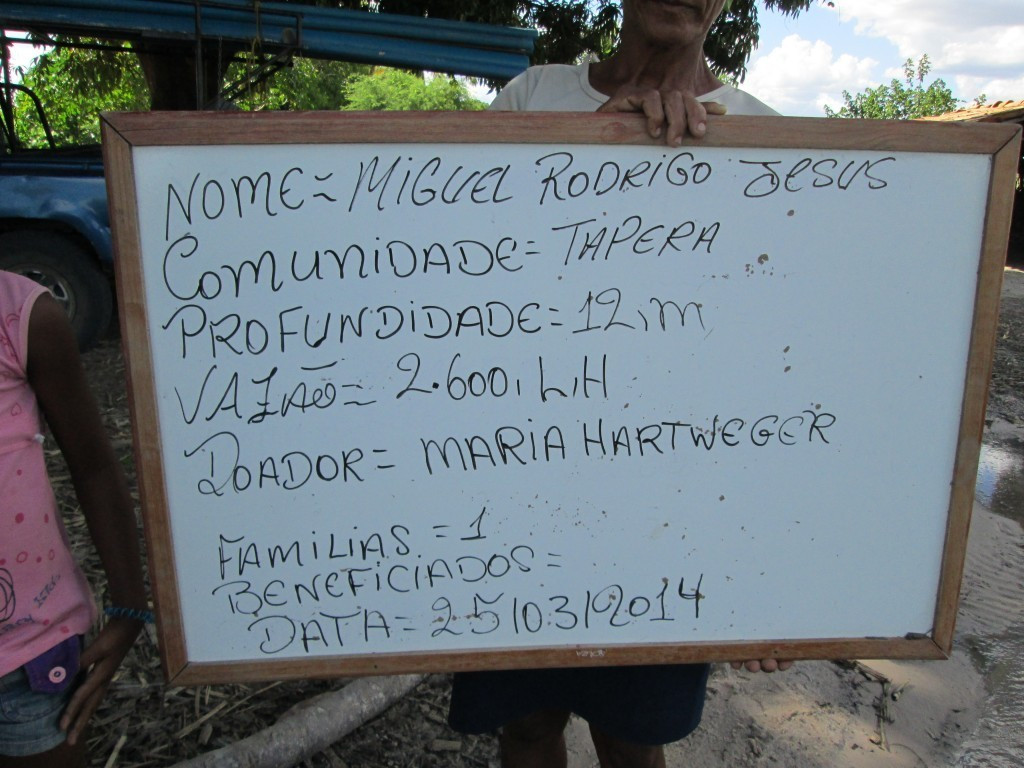 NOME = MIGUEL RODRIGO JESUS
COMUNIDADE = TAPERA
PROFUNDIDADE = 12,m
VAZÃO = 2.600, L,H
DOADOR = MARIA HARTWEGER
FAMILIAS = 1
BENEFICIADOS =
DATA = 25/03/2014